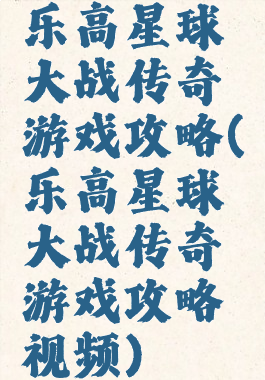 乐高星球
大战传奇
游戏攻略(
乐高星球
大战传奇
游戏攻略
视频)